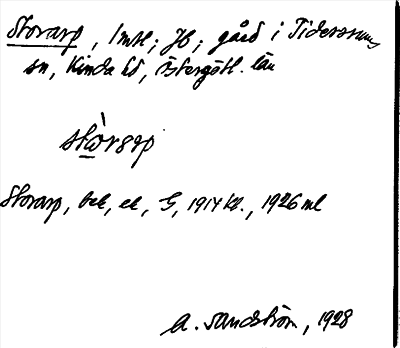 Storarp, 1mtl; Jb; gård i Tidersrums
sn, Kinda hd, Östergötl. län
stòrarp
Storarp, bek, ek, G, 1914 kl., 1926 ml
A. Sandström, 1928